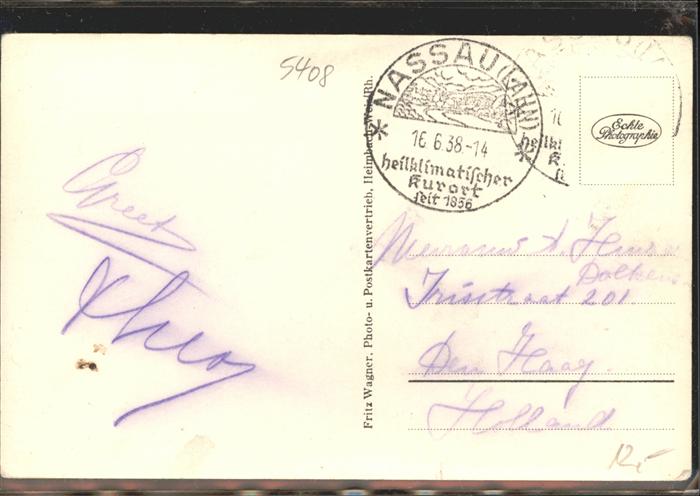 5408
NASSAU (LAHN)
16.6.38-14
heilklimatischer
Kurort
seit 1856
Echte
Photographie
Greet
Theo
Fritz Wagner, Photo- u. Postkartenvertrieb, Heimbach-Weis/Rh.
Irisstraat 201
Den Haag.
Holland